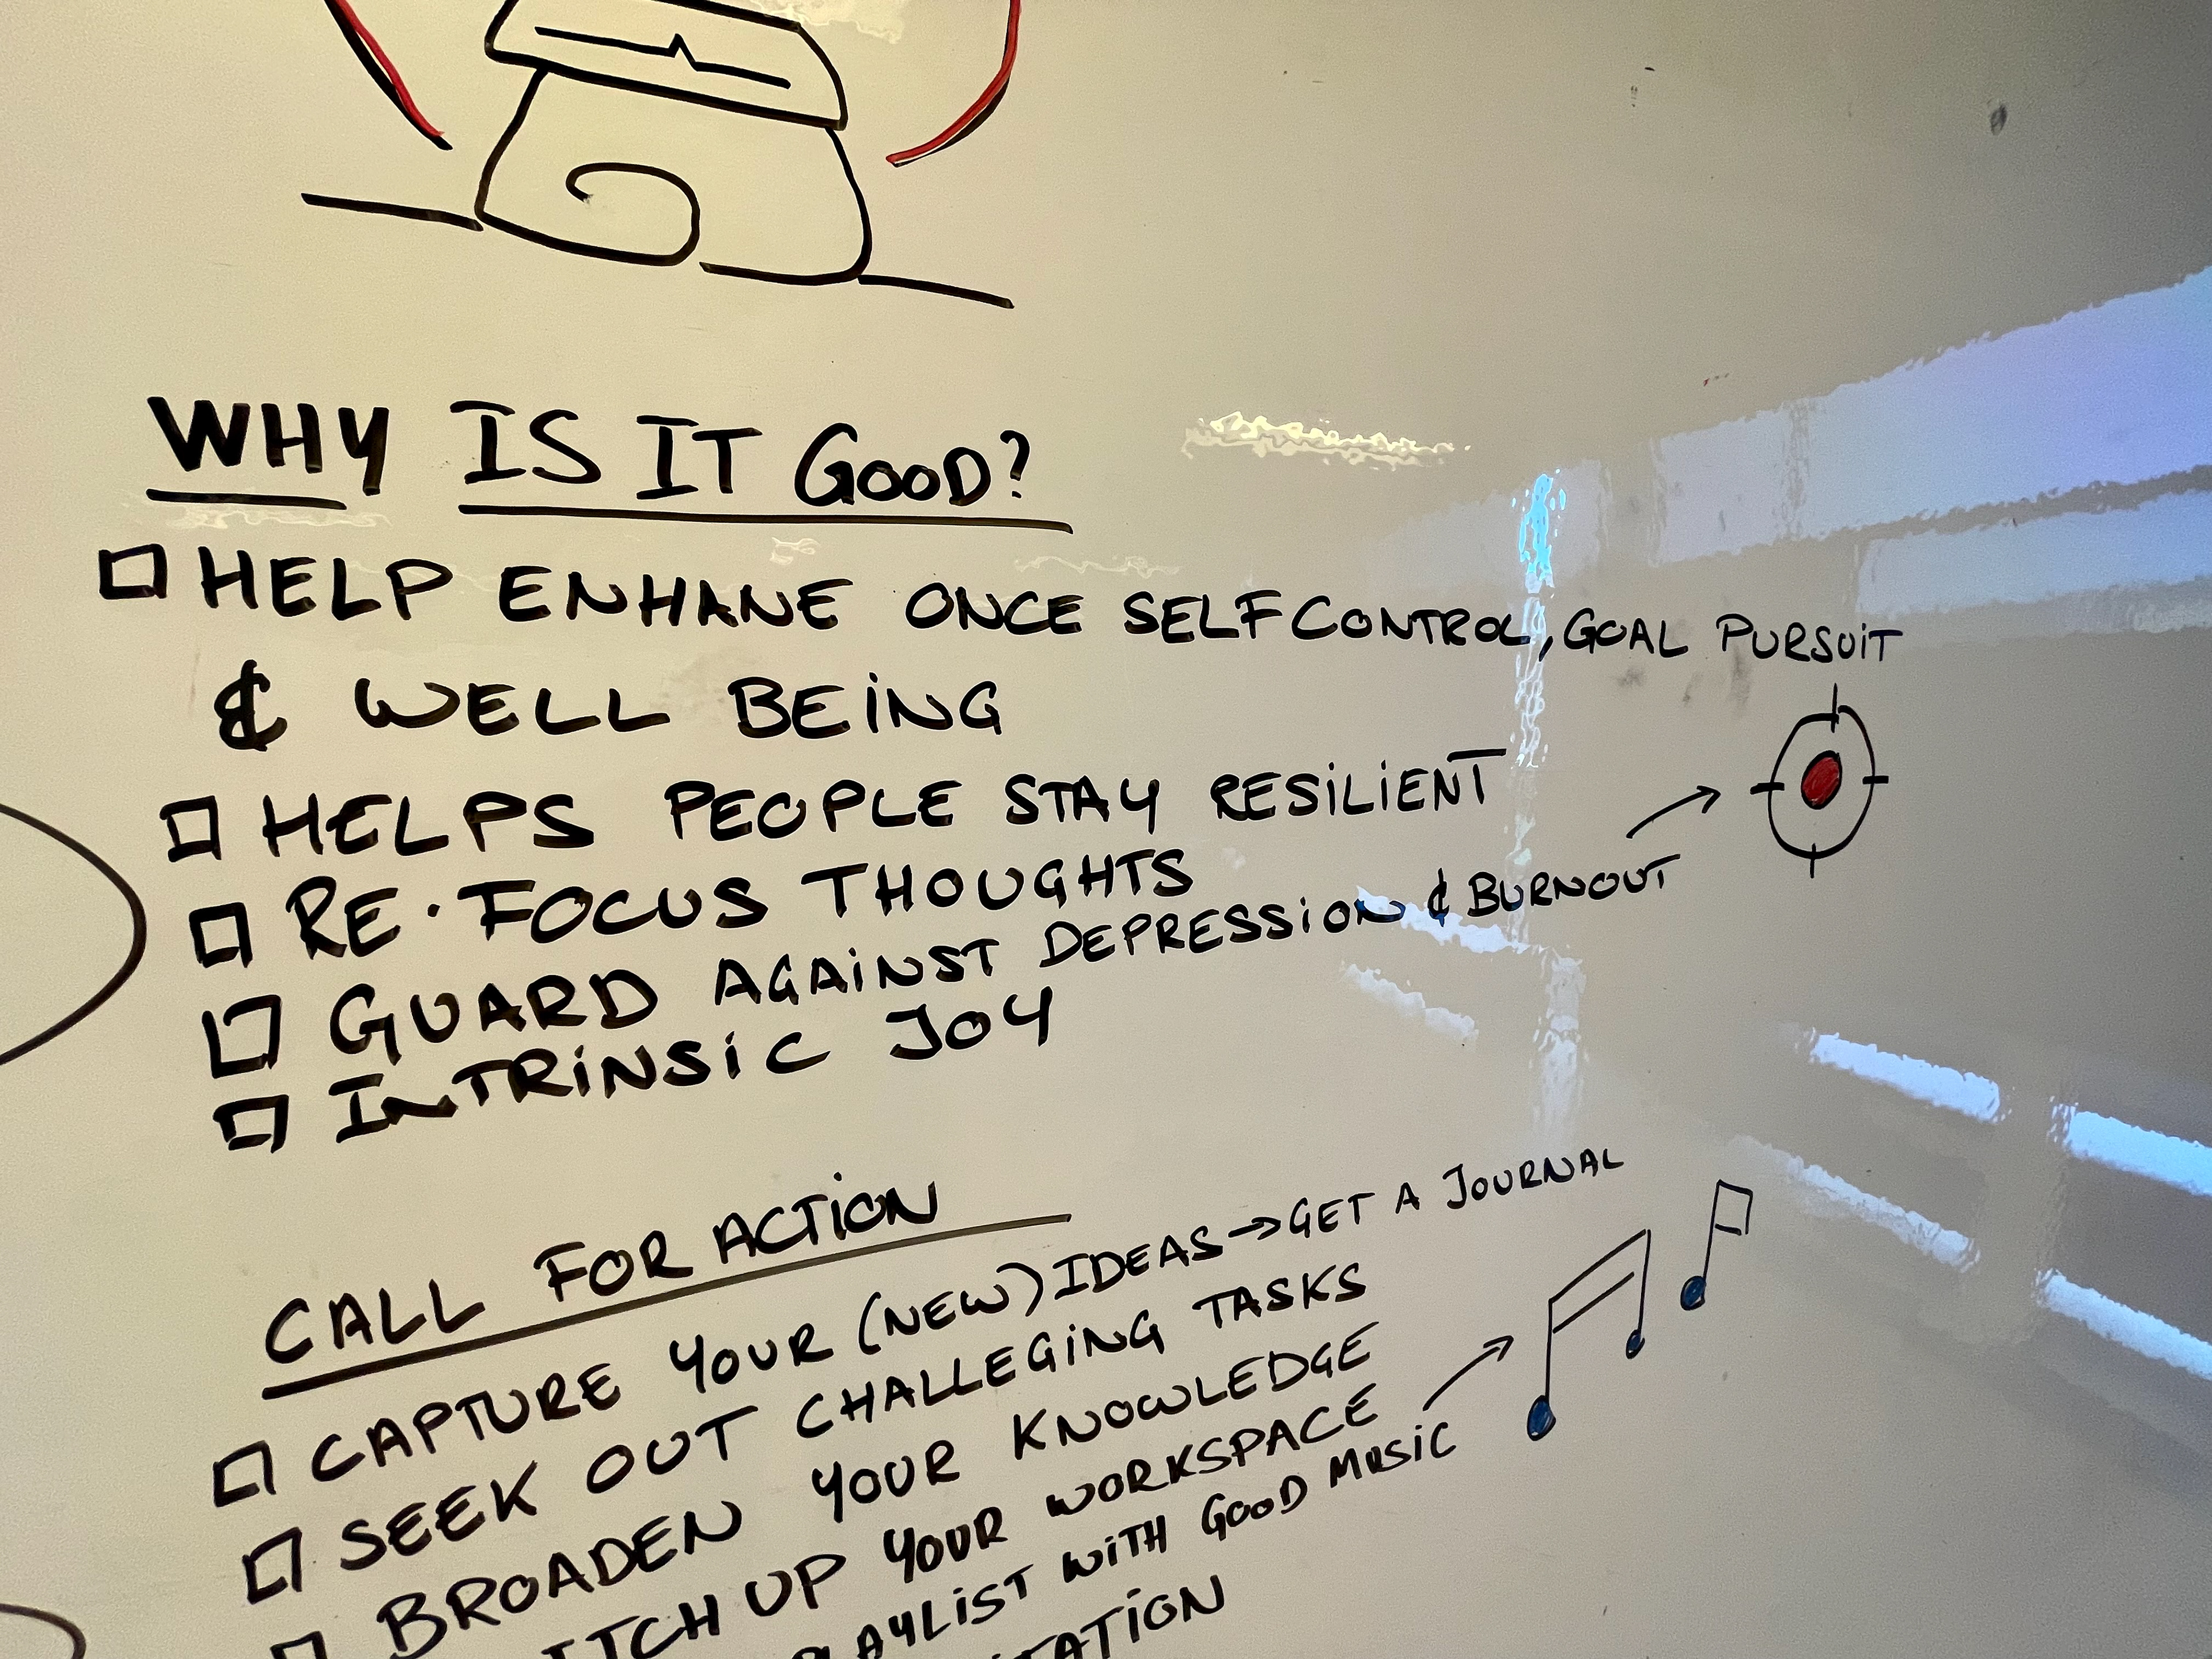 WHY IS IT GOOD?
HELP ENHANE ONCE SELFCONTROL, GOAL PURSUIT
& WELL BEING
HELPS PEOPLE STAY RESILIENT
RE·FOCUS THOUGHTS
GUARD AGAINST DEPRESSION & BURNOUT
INTRINSIC JOY
CALL FOR ACTION
CAPTURE YOUR (NEW) IDEAS → GET A JOURNAL
SEEK OUT CHALLEGING TASKS
BROADEN YOUR KNOWLEDGE
UP YOUR WORKSPACE
PLAYLIST WITH GOOD MUSIC